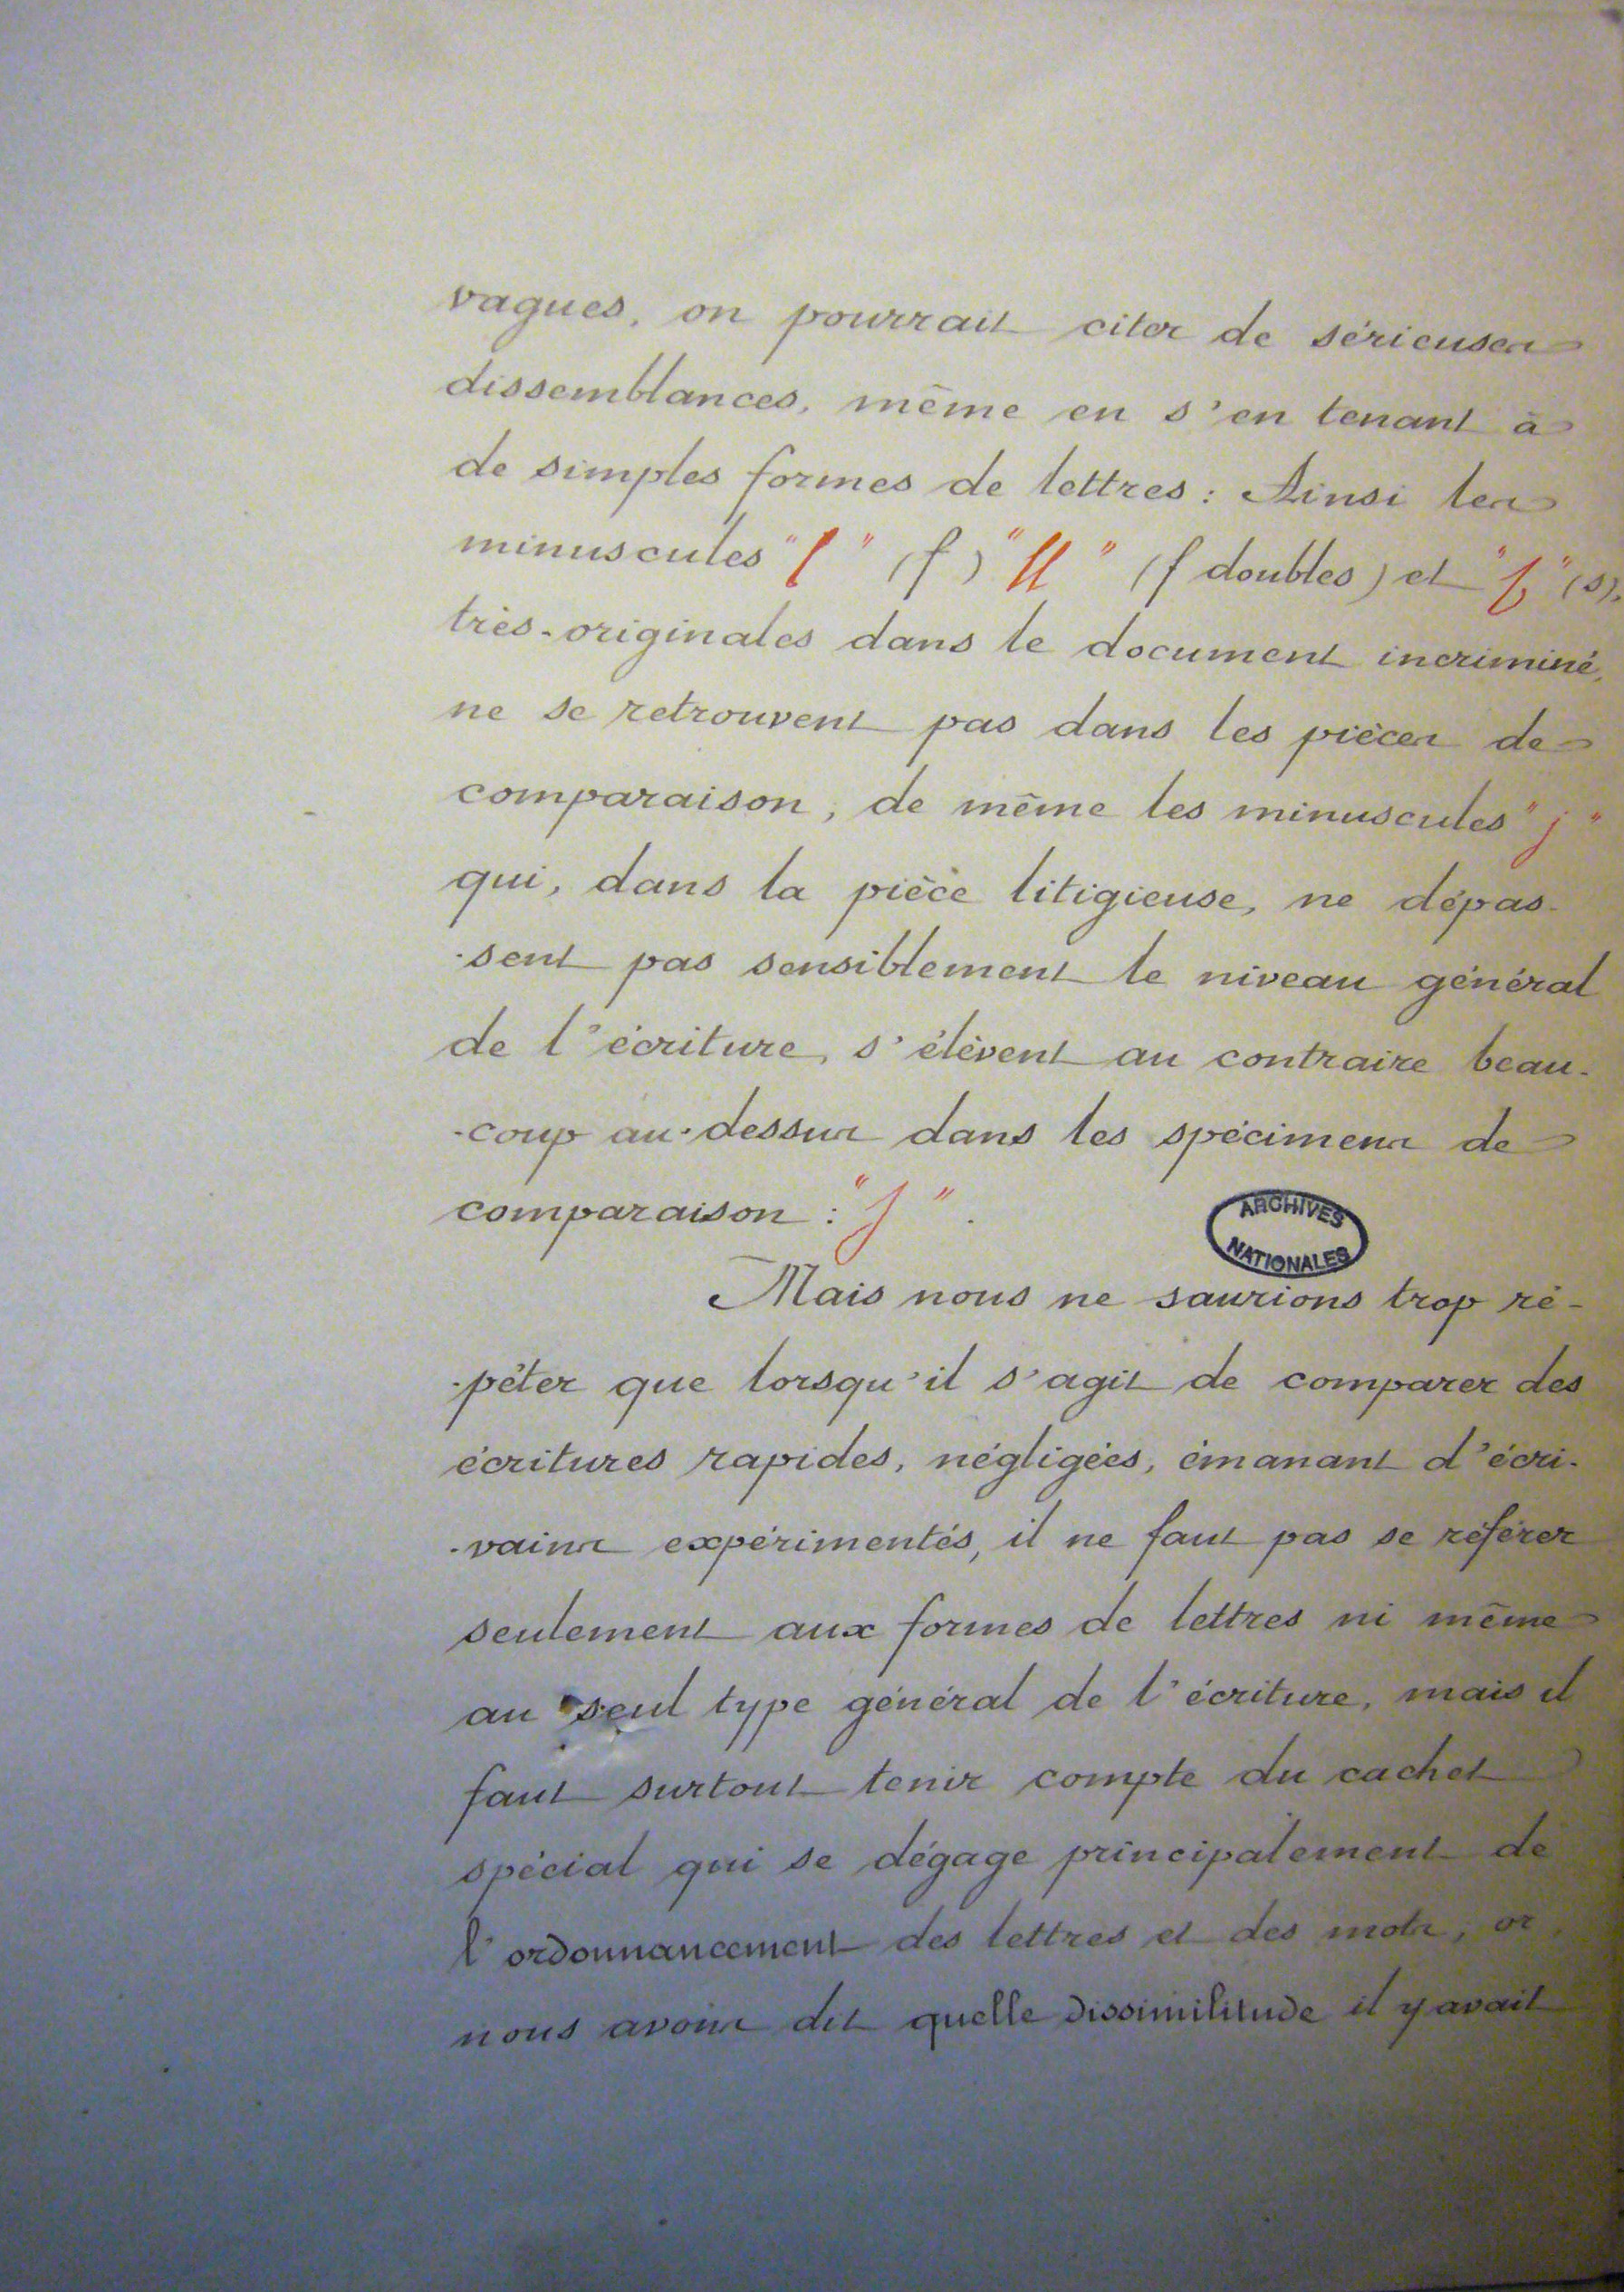 vagues, on pourrait citer de sérieuses
dissemblances, même en s'en tenant à
de simples formes de lettres : Ainsi les
minuscules "f" (f) "ff" (f doubles) et "s" (s),
très-originales dans le document incriminé,
ne se retrouvent pas dans les pièces de
comparaison, de même les minuscules "j"
qui, dans la pièce litigieuse, ne dépas-
-sent pas sensiblement le niveau général
de l'écriture, s'élèvent au contraire beau-
-coup au-dessus dans les spécimens de
comparaison : "j".
ARCHIVES
NATIONALES
Mais nous ne saurions trop ré-
-péter que lorsqu'il s'agit de comparer des
écritures rapides, négligées, émanant d'écri-
-vains expérimentés, il ne faut pas se référer
seulement aux formes de lettres ni même
au seul type général de l'écriture, mais il
faut surtout tenir compte du cachet
spécial qui se dégage principalement de
l'ordonnancement des lettres et des mots, or,
nous avons dit quelle dissimilitude il y avait